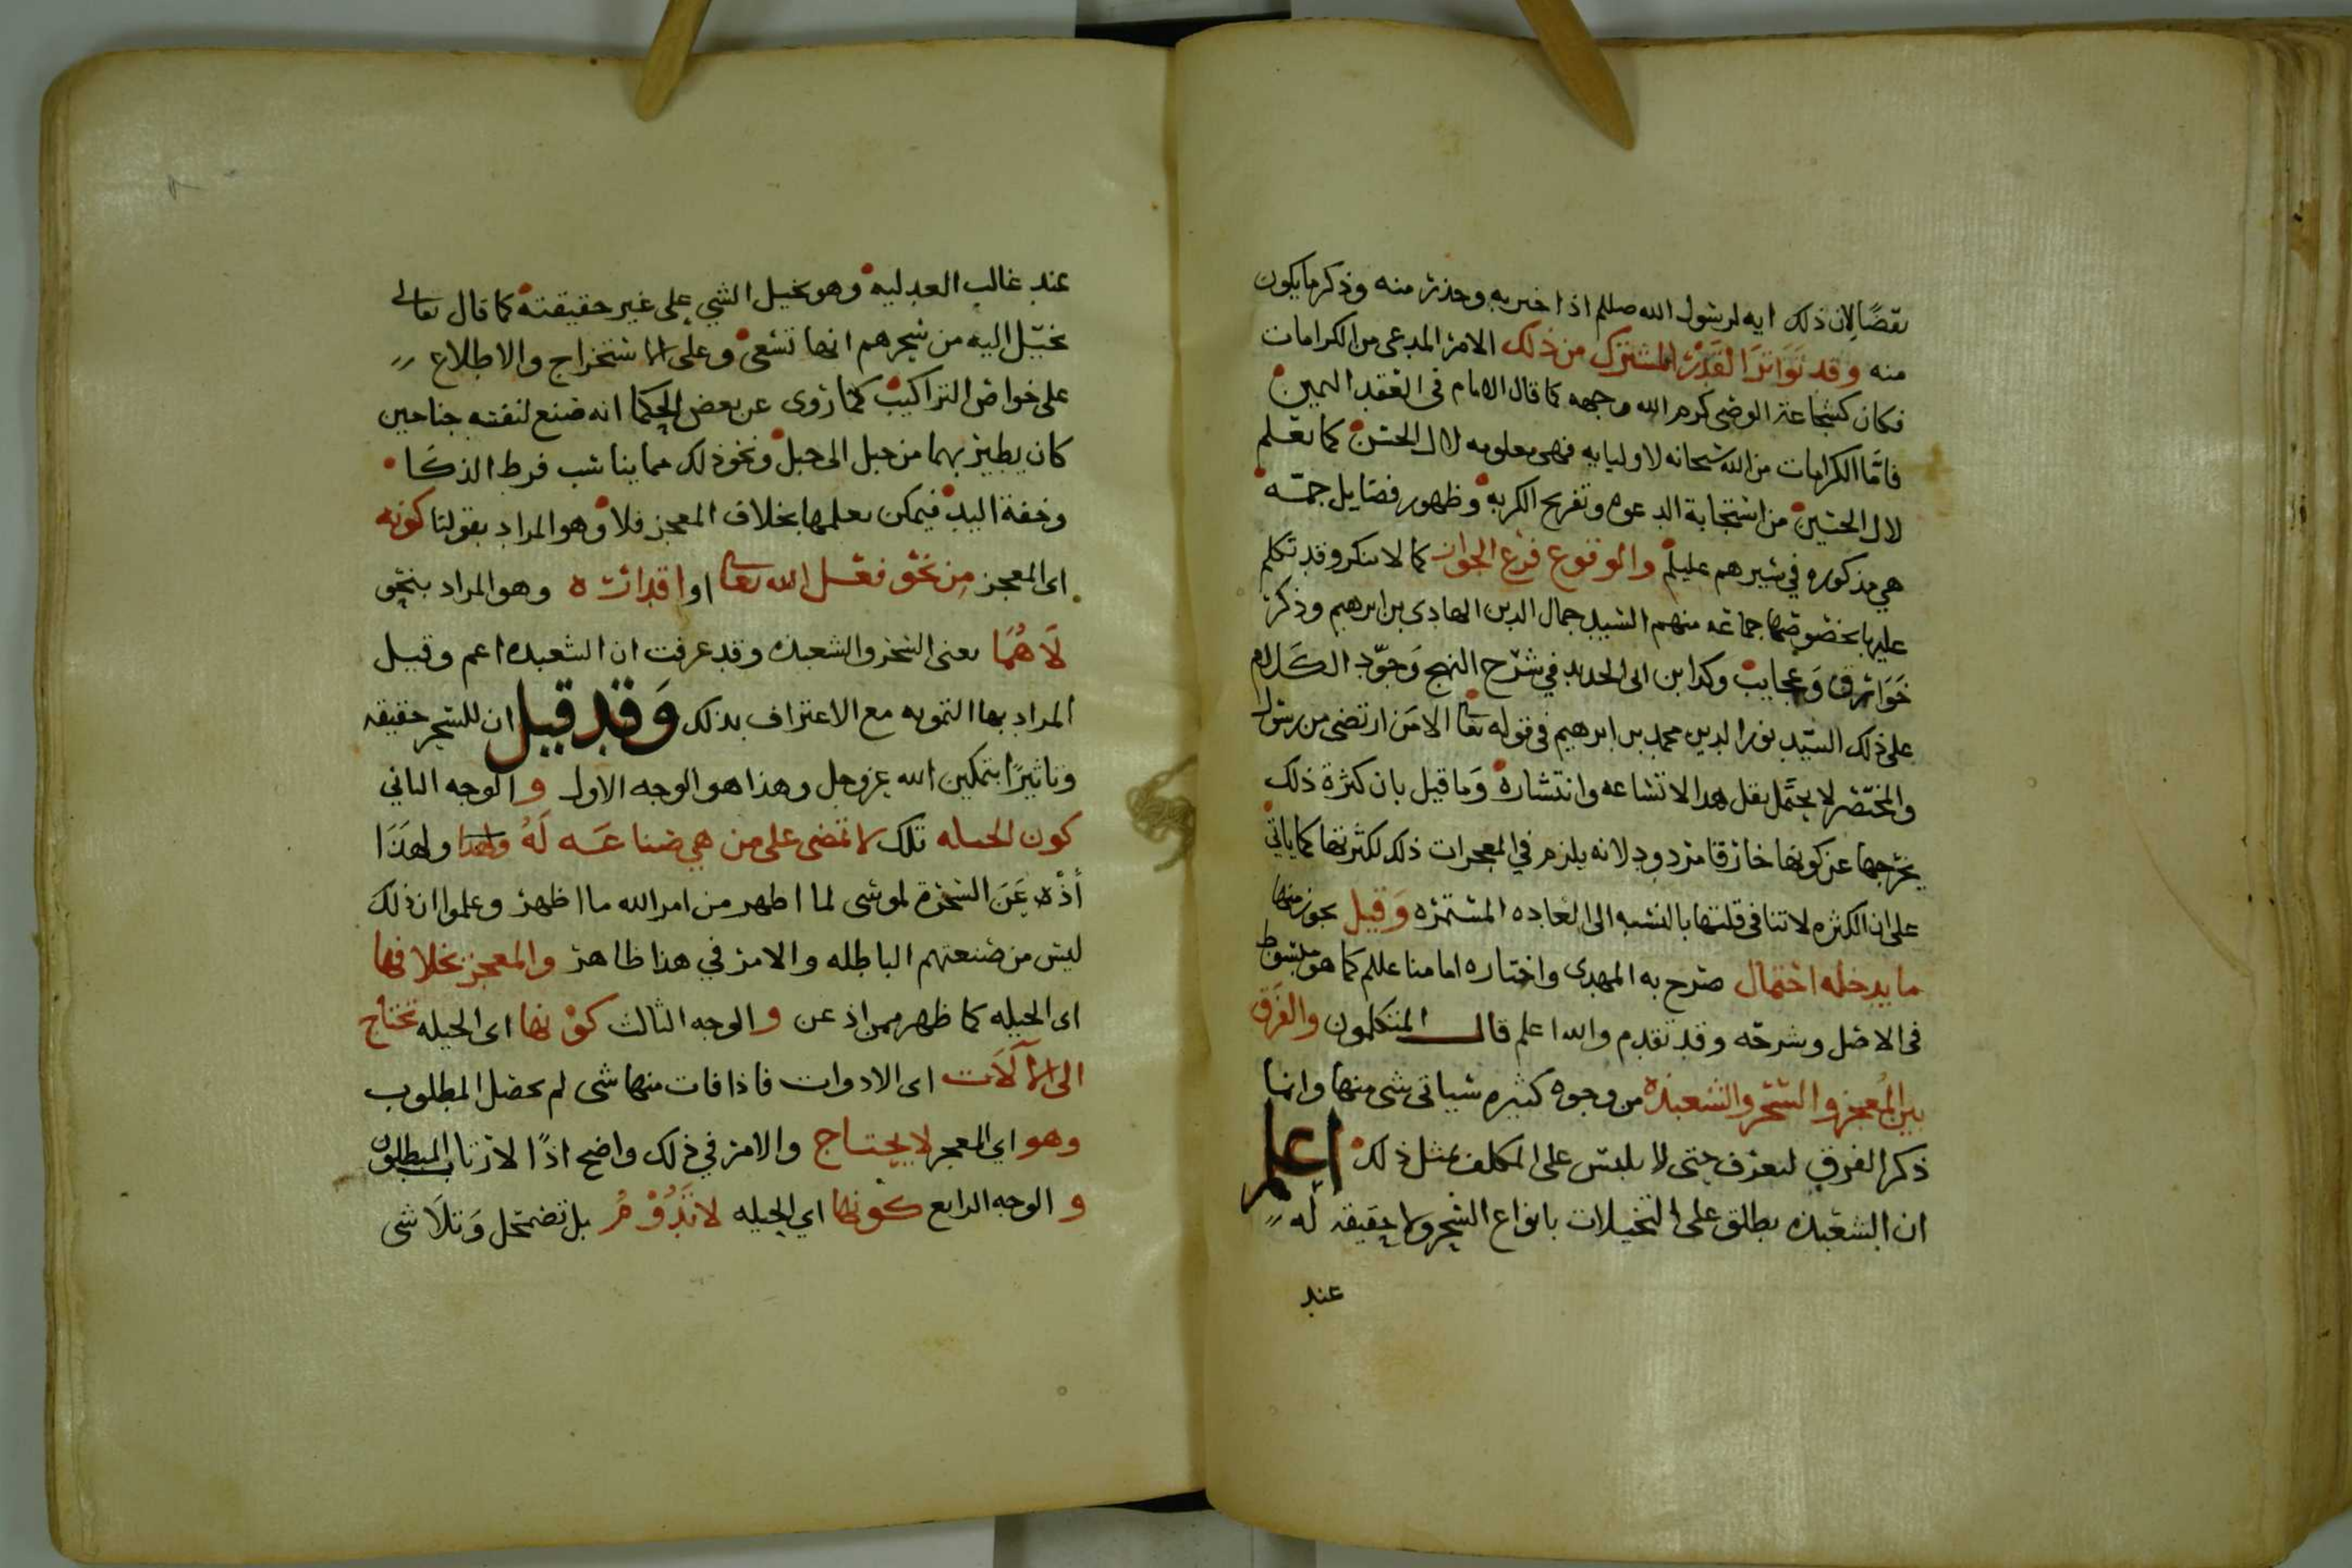 نقضًا لان ذلك ايه لرسول الله صللم اذا اخبر به وحذر منه وذكر ما يكون
منه وقد تَوَاتَرَ القَدْرُ المشترك من ذلك الامر المدعى من الكرامات
فكان كشجاعة الوصي كرم الله وجهه كما قال الامام في العقد الثمين
فامَّا الكرامات من الله سبحانه لاوليايه فهي معلومه لال الحسن كما تعلم
لال الحسين من استجابة الدعوه وتفريج الكربه وظهور فضايل جمّه
هي مذكوره في سيرهم عليلم والوقوع فرع الجواز كما لا ينكر وقد تكلم
عليها بخصوصها جماعه منهم السيد جمال الدين الهادي بن ابرهيم وذكر
خَوَارق وَعجايب وكذا ابن ابي الحديد في شرح النهج وَجوّد الكلام
على ذلك السيّد نور الدين محمد بن ابرهيم في قوله تعا الا من ارتضى من رسول
والمختصر لا يحتمل نقل هذا لاتساعه وانتشاره وَما قيل بان كثرة ذلك
يخرجها عن كونها خارقا مردود لانه يلزم في المعجزات ذلك لكثرتها كما ياتي
على ان الكثره لا تنافي قلتها بالنسبه الى العاده المستمره وَقيل يجوز منها
ما يدخله احتمال صرح به المهدي واختاره امامنا عللم كما هو مبسوط
في الاصل وشرحه وقد تقدم والله اعلم قال المتكلمون والفَرق
بين المُعجز والسّحر والشعبذه من وجوه كثيره سياتي شي منها وانما
ذكر الفرق ليعرف حتى لا يلبس على المكلف بمثل ذلك اعلم
ان الشعبذه يطلق على التخيلات بانواع السحر ولا حقيقه له
عند
عند غالب العدليه وهو تخيل الشي على غير حقيقته كما قال تعالى
يخيّل اليه من سحرهم انها تسعى وعلى الاستخراج والاطلاع
على خواص التراكيب كما روى عن بعض الحكما انه صنع لنفسه جناحين
كان يطير بهما من جبل الى جبل ونحو ذلك مما يناسب فرط الذكَا
وخفة اليد فيمكن تعلمها بخلاف المعجز فلا وهو المراد بقولنا كونه
اى المعجز مِن نحو فعل الله تعا او اقداره وهو المراد بنحو
لَا هُمَا يعني السحر والشعبذه وقد عرفت ان الشعبذه اعم وقيل
المراد بها التمويه مع الاعتراف بذلك وَقد قيل ان للسحر حقيقه
وتاثيرًا بتمكين الله عز وجل وهذا هو الوجه الاول و الوجه الثاني
كون الحيله تلك لا تمضى على من هي صناعَه لَهُ ولهذا
أذْعَنَ السّحرة لموسى لما اظهر من امر الله ما اظهر وعلموا ان ذلك
ليس من صنعتهم الباطله والامر في هذا ظاهر والمعجز بخلافها
اى الحيله كما ظهر ممن اذعن و الوجه الثالث كوْنها اى الحيله تحتاج
الى الآلَات اى الادوات فاذا فات منها شى لم يحصل المطلوب
وهو اي المعجز لا يحتاج والامر في ذلك واضح اذًا لارتاب المبطلون
و الوجه الرابع كونها اي الحيله لا تَدُوْمُ بل تضمحل وَتتلَاشى